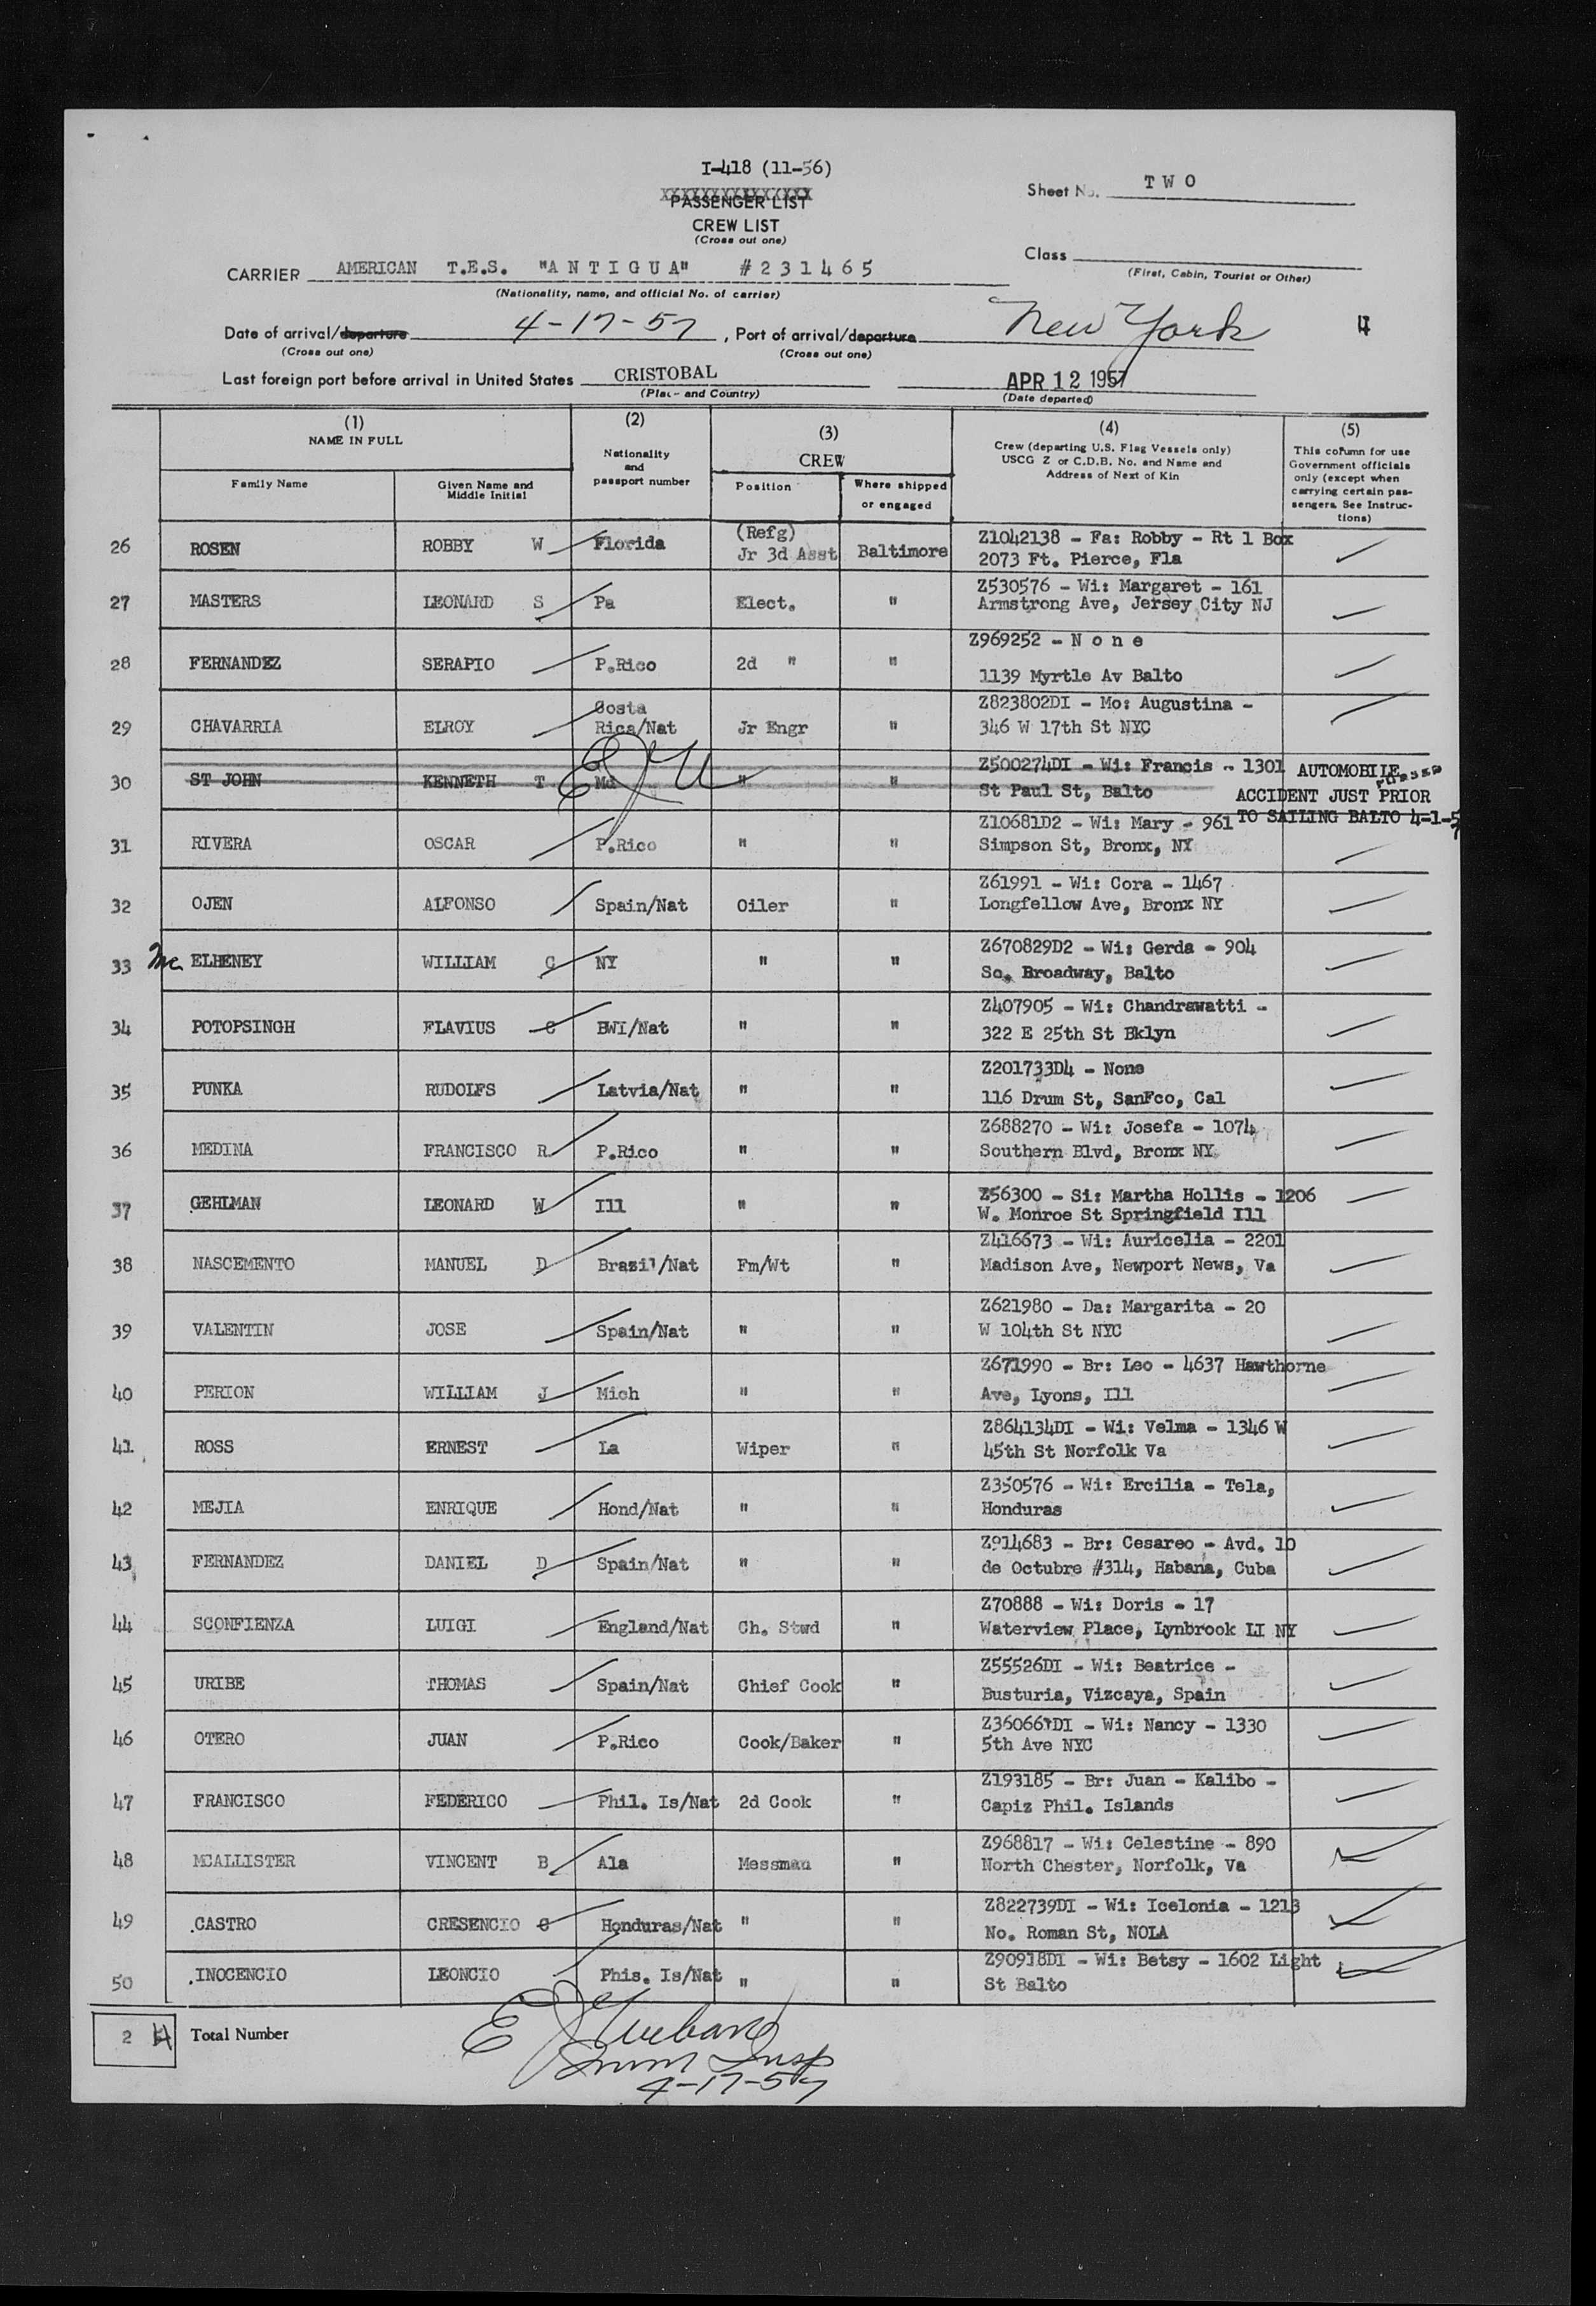 I-418 (11-56)
XXXXXXXXXXXXXXX
PASSENGER LIST
CREW LIST
(Cross out one)
Sheet No. TWO
Class
(First, Cabin, Tourist or Other)
CARRIER AMERICAN T.E.S. "ANTIGUA" #231465
(Nationality, name, and official No. of carrier)
Date of arrival/departure 4-17-57, Port of arrival/departure New York 4
(Cross out one) (Cross out one)
Last foreign port before arrival in United States CRISTOBAL APR 12 1957
(Place and Country) (Date departed)
(1) NAME IN FULL
Family Name
Given Name and Middle Initial
(2) Nationality and passport number
(3) CREW
Position
Where shipped or engaged
(4) Crew (departing U.S. Flag Vessels only) USCG Z or C.D.B. No. and Name and Address of Next of Kin
(5) This column for use Government officials only (except when carrying certain passengers. See Instructions)
26 ROSEN ROBBY W Florida (Refg) Jr 3d Asst Baltimore Z1042138 - Fa: Robby - Rt 1 Box
2073 Ft. Pierce, Fla
27 MASTERS LEONARD S Pa Elect. " Z530576 - Wi: Margaret - 161
Armstrong Ave, Jersey City NJ
28 FERNANDEZ SERAPIO P.Rico 2d " " Z969252 - None
1139 Myrtle Av Balto
29 CHAVARRIA ELROY Costa Rica/Nat Jr Engr " Z823802DI - Mo: Augustina -
346 W 17th St NYC
30 ST JOHN KENNETH T Md " " Z500274DI - Wi: Francis - 1301
St Paul St, Balto
AUTOMOBILE
ACCIDENT JUST PRIOR
TO SAILING BALTO 4-1-5
31 RIVERA OSCAR P.Rico " " Z10681D2 - Wi: Mary - 961
Simpson St, Bronx, NY
32 OJEN ALFONSO Spain/Nat Oiler " Z61991 - Wi: Cora - 1467
Longfellow Ave, Bronx NY
33 Mc ELHENEY WILLIAM C NY " " Z670829D2 - Wi: Gerda - 904
So. Broadway, Balto
34 POTOPSINGH FLAVIUS C BWI/Nat " " Z407905 - Wi: Chandrawatti -
322 E 25th St Bklyn
35 PUNKA RUDOLFS Latvia/Nat " " Z201733D4 - None
116 Drum St, SanFco, Cal
36 MEDINA FRANCISCO R P.Rico " " Z688270 - Wi: Josefa - 1074
Southern Blvd, Bronx NY
37 GEHLMAN LEONARD W Ill " " Z56300 - Si: Martha Hollis - 1206
W. Monroe St Springfield Ill
38 NASCEMENTO MANUEL D Brazil/Nat Fm/Wt " Z416673 - Wi: Auricelia - 2201
Madison Ave, Newport News, Va
39 VALENTIN JOSE Spain/Nat " " Z621980 - Da: Margarita - 20
W 104th St NYC
40 PERION WILLIAM J Mich " " Z671990 - Br: Leo - 4637 Hawthorne
Ave, Lyons, Ill
41 ROSS ERNEST La Wiper " Z864134DI - Wi: Velma - 1346 W
45th St Norfolk Va
42 MEJIA ENRIQUE Hond/Nat " " Z350576 - Wi: Ercilia - Tela,
Honduras
43 FERNANDEZ DANIEL D Spain/Nat " " Z914683 - Br: Cesareo - Avd. 10
de Octubre #314, Habana, Cuba
44 SCONFIENZA LUIGI England/Nat Ch. Stwd " Z70888 - Wi: Doris - 17
Waterview Place, Lynbrook LI NY
45 URIBE THOMAS Spain/Nat Chief Cook " Z55526DI - Wi: Beatrice -
Busturia, Vizcaya, Spain
46 OTERO JUAN P.Rico Cook/Baker " Z360661DI - Wi: Nancy - 1330
5th Ave NYC
47 FRANCISCO FEDERICO Phil. Is/Nat 2d Cook " Z193185 - Br: Juan - Kalibo -
Capiz Phil. Islands
48 MCALLISTER VINCENT B Ala Messman " Z968817 - Wi: Celestine - 890
North Chester, Norfolk, Va
49 CASTRO CRESENCIO C Honduras/Nat " " Z822739DI - Wi: Icelonia - 1213
No. Roman St, NOLA
50 INOCENCIO LEONCIO Phis. Is/Nat " " Z90918DI - Wi: Betsy - 1602 Light
St Balto
2 4 Total Number
E J
Imm Insp
4-17-57